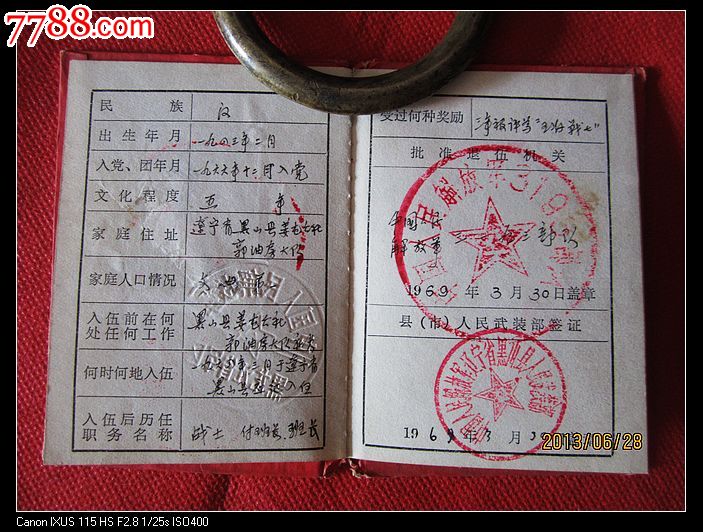 7788.com
民族 汉
出生年月 一九四三年二月
入党、团年月 一九六六年十二月入党
文化程度 五年
家庭住址 辽宁省黑山县姜屯公社
郭油房大队
家庭人口情况
入伍前在何
处任何工作
黑山县姜屯公社
郭油房大队
何时何地入伍
年三月于辽宁省
黑山县 入伍
入伍后历任
职务名称
战士 付班长 班长
受过何种奖励 三年被评为"五好战士"
批准退伍机关
中国人民
解放军
部队
1969年3月30日盖章
县(市)人民武装部签证
中国人民解放军辽宁省黑山县人民武装部
1969年3月
2013/06/28
Canon IXUS 115 HS F2.8 1/25s ISO400